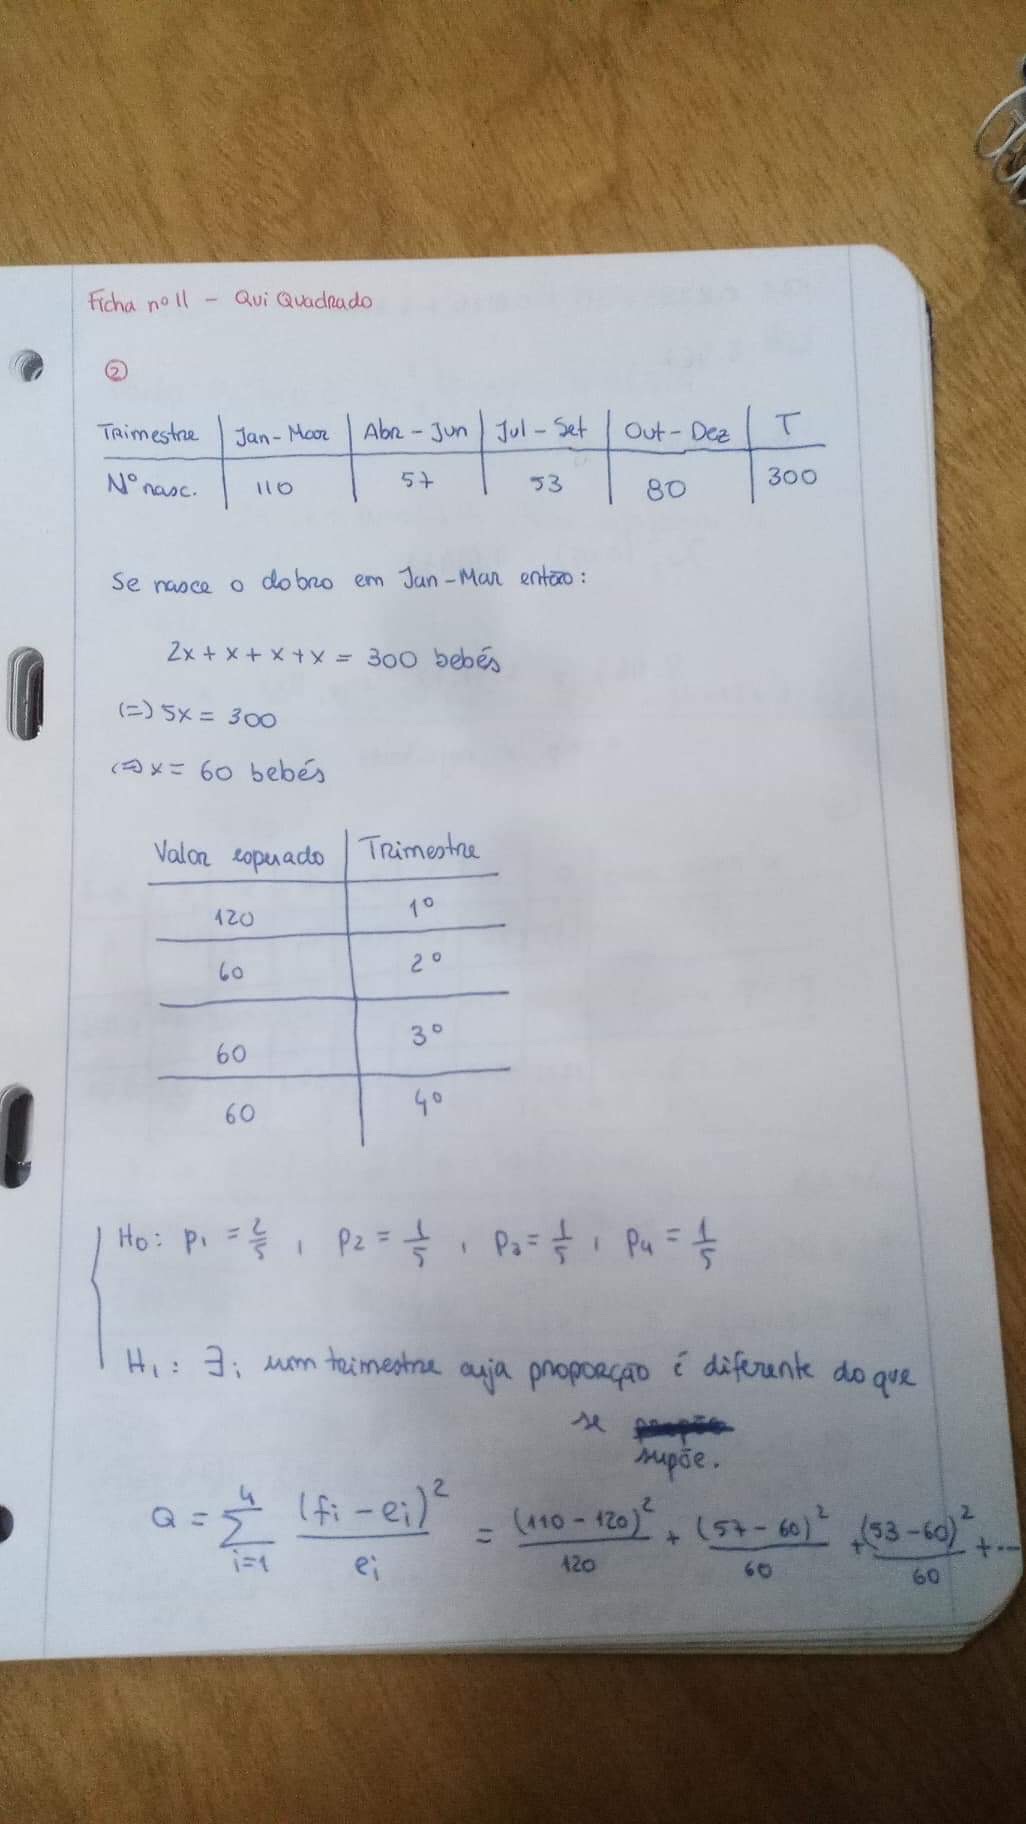 Ficha nº 11 - Qui Quadrado
②
Trimestre | Jan-Mar | Abr-Jun | Jul-Set | Out-Dez | T
Nº nasc. | 110 | 57 | 53 | 80 | 300
Se nasce o dobro em Jan-Mar então:
2x + x + x + x = 300 bebés
(=) 5x = 300
(=) x = 60 bebés
Valor esperado | Trimestre
120 | 1º
60 | 2º
60 | 3º
60 | 4º
H0: p1 = 2/5 , p2 = 1/5 , p3 = 1/5 , p4 = 1/5
H1: ∃i um trimestre cuja proporção é diferente do que
se
supõe.
Q = 4 Σ i=1 (fi - ei)²/ei = (110 - 120)²/120 + (57 - 60)²/60 + (53 - 60)²/60 + ...